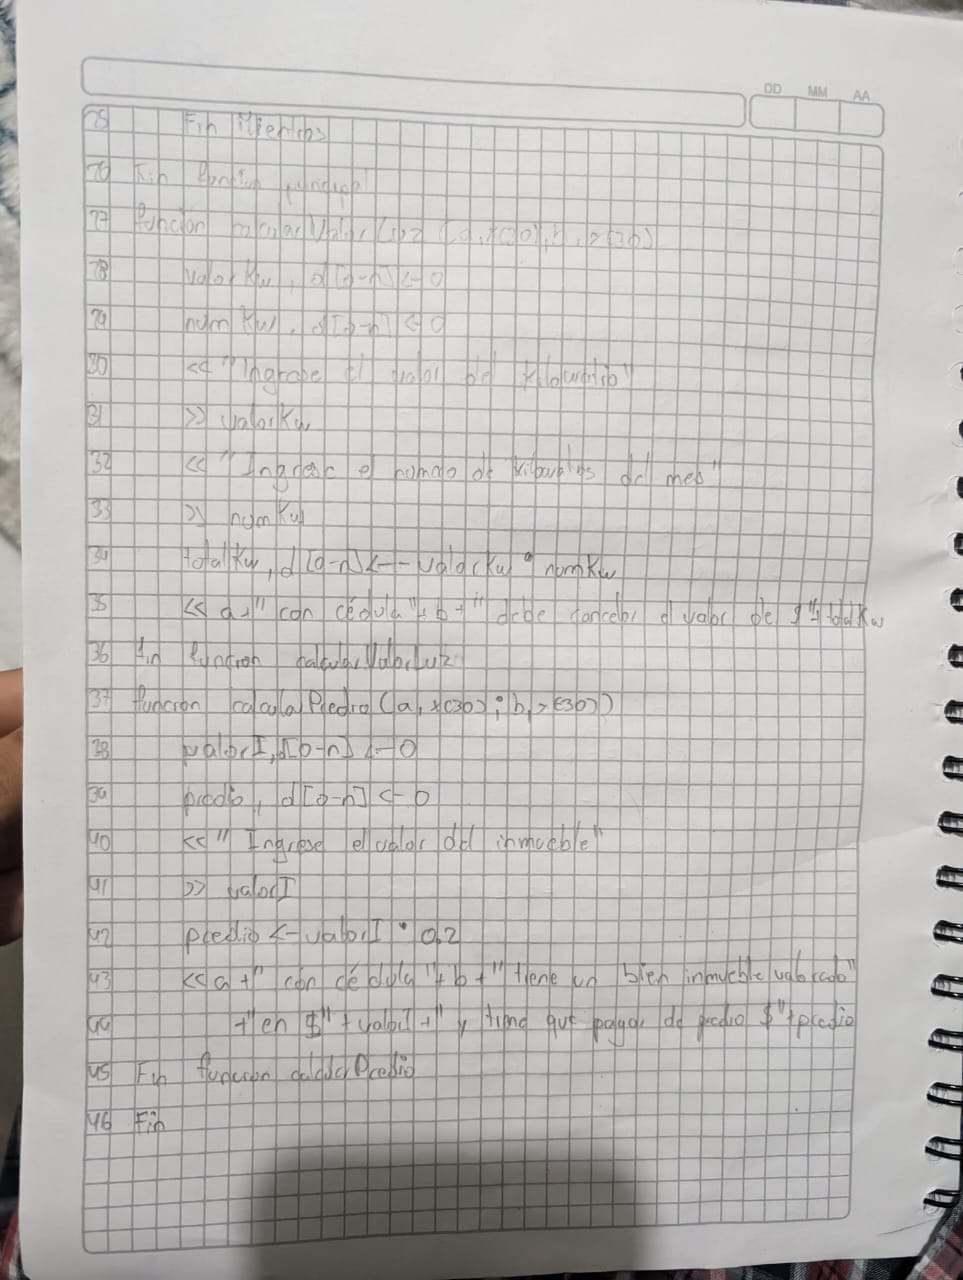 DD MM AA
25 Fin Mientras
26 Fin función principal
27 función calcularValorLuz (a, x(30), b, x(30)
28 valorKw, d[0-n] <- 0
29 numKw, d[0-n] <- 0
30 << "Ingrese el valor del kilowatio"
31 >> valorKw
32 << "Ingrese el numero de kilowatios del mes"
33 >> numKw
34 totalKw, d[0-n] <-- valorKw * numKw
35 << a+" con cédula "+ b +" debe cancelar el valor de $"+totalKw
36 fin función calcularValorLuz
37 funcion calculaPredio (a, x(30); b, x(30))
38 valorI, d[0-n] <- 0
39 predio, d[0-n] <- 0
40 << " Ingrese el valor del inmueble"
41 >> valorI
42 predio <- valorI * 0.2
43 << a +" con cédula "+ b +" tiene un bien inmueble valorado"
44 +"en $"+valorI+" y tiene que pagar de predio $"+predio
45 Fin funcion calculaPredio
46 Fin